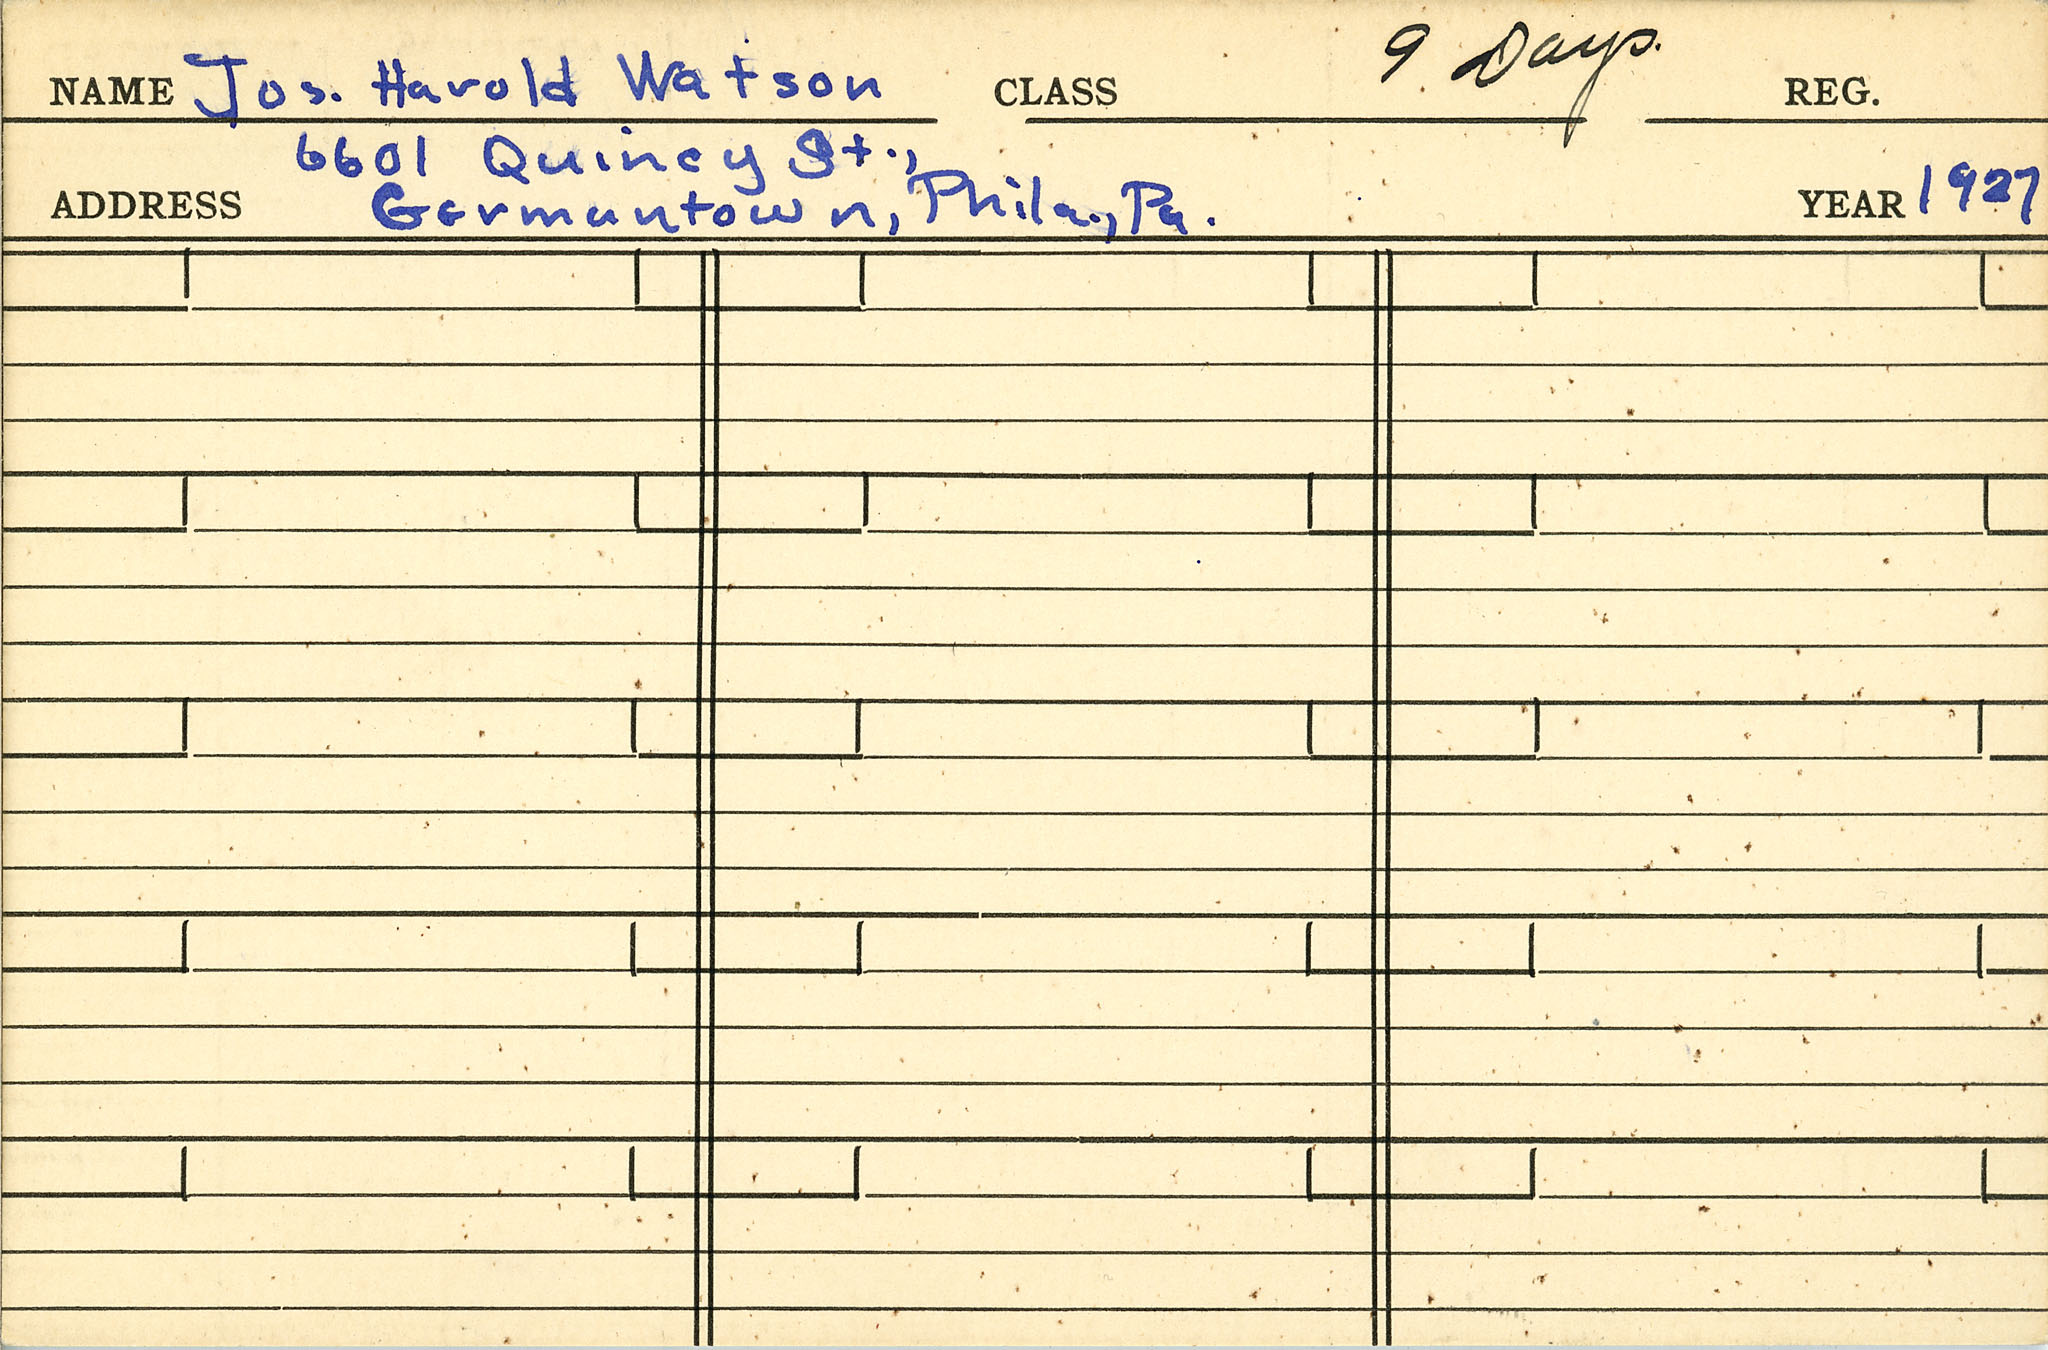 NAME Jos. Harold Watson CLASS 9 Days. REG.
6601 Quincy St.,
ADDRESS Germantown, Phila., Pa. YEAR 1927